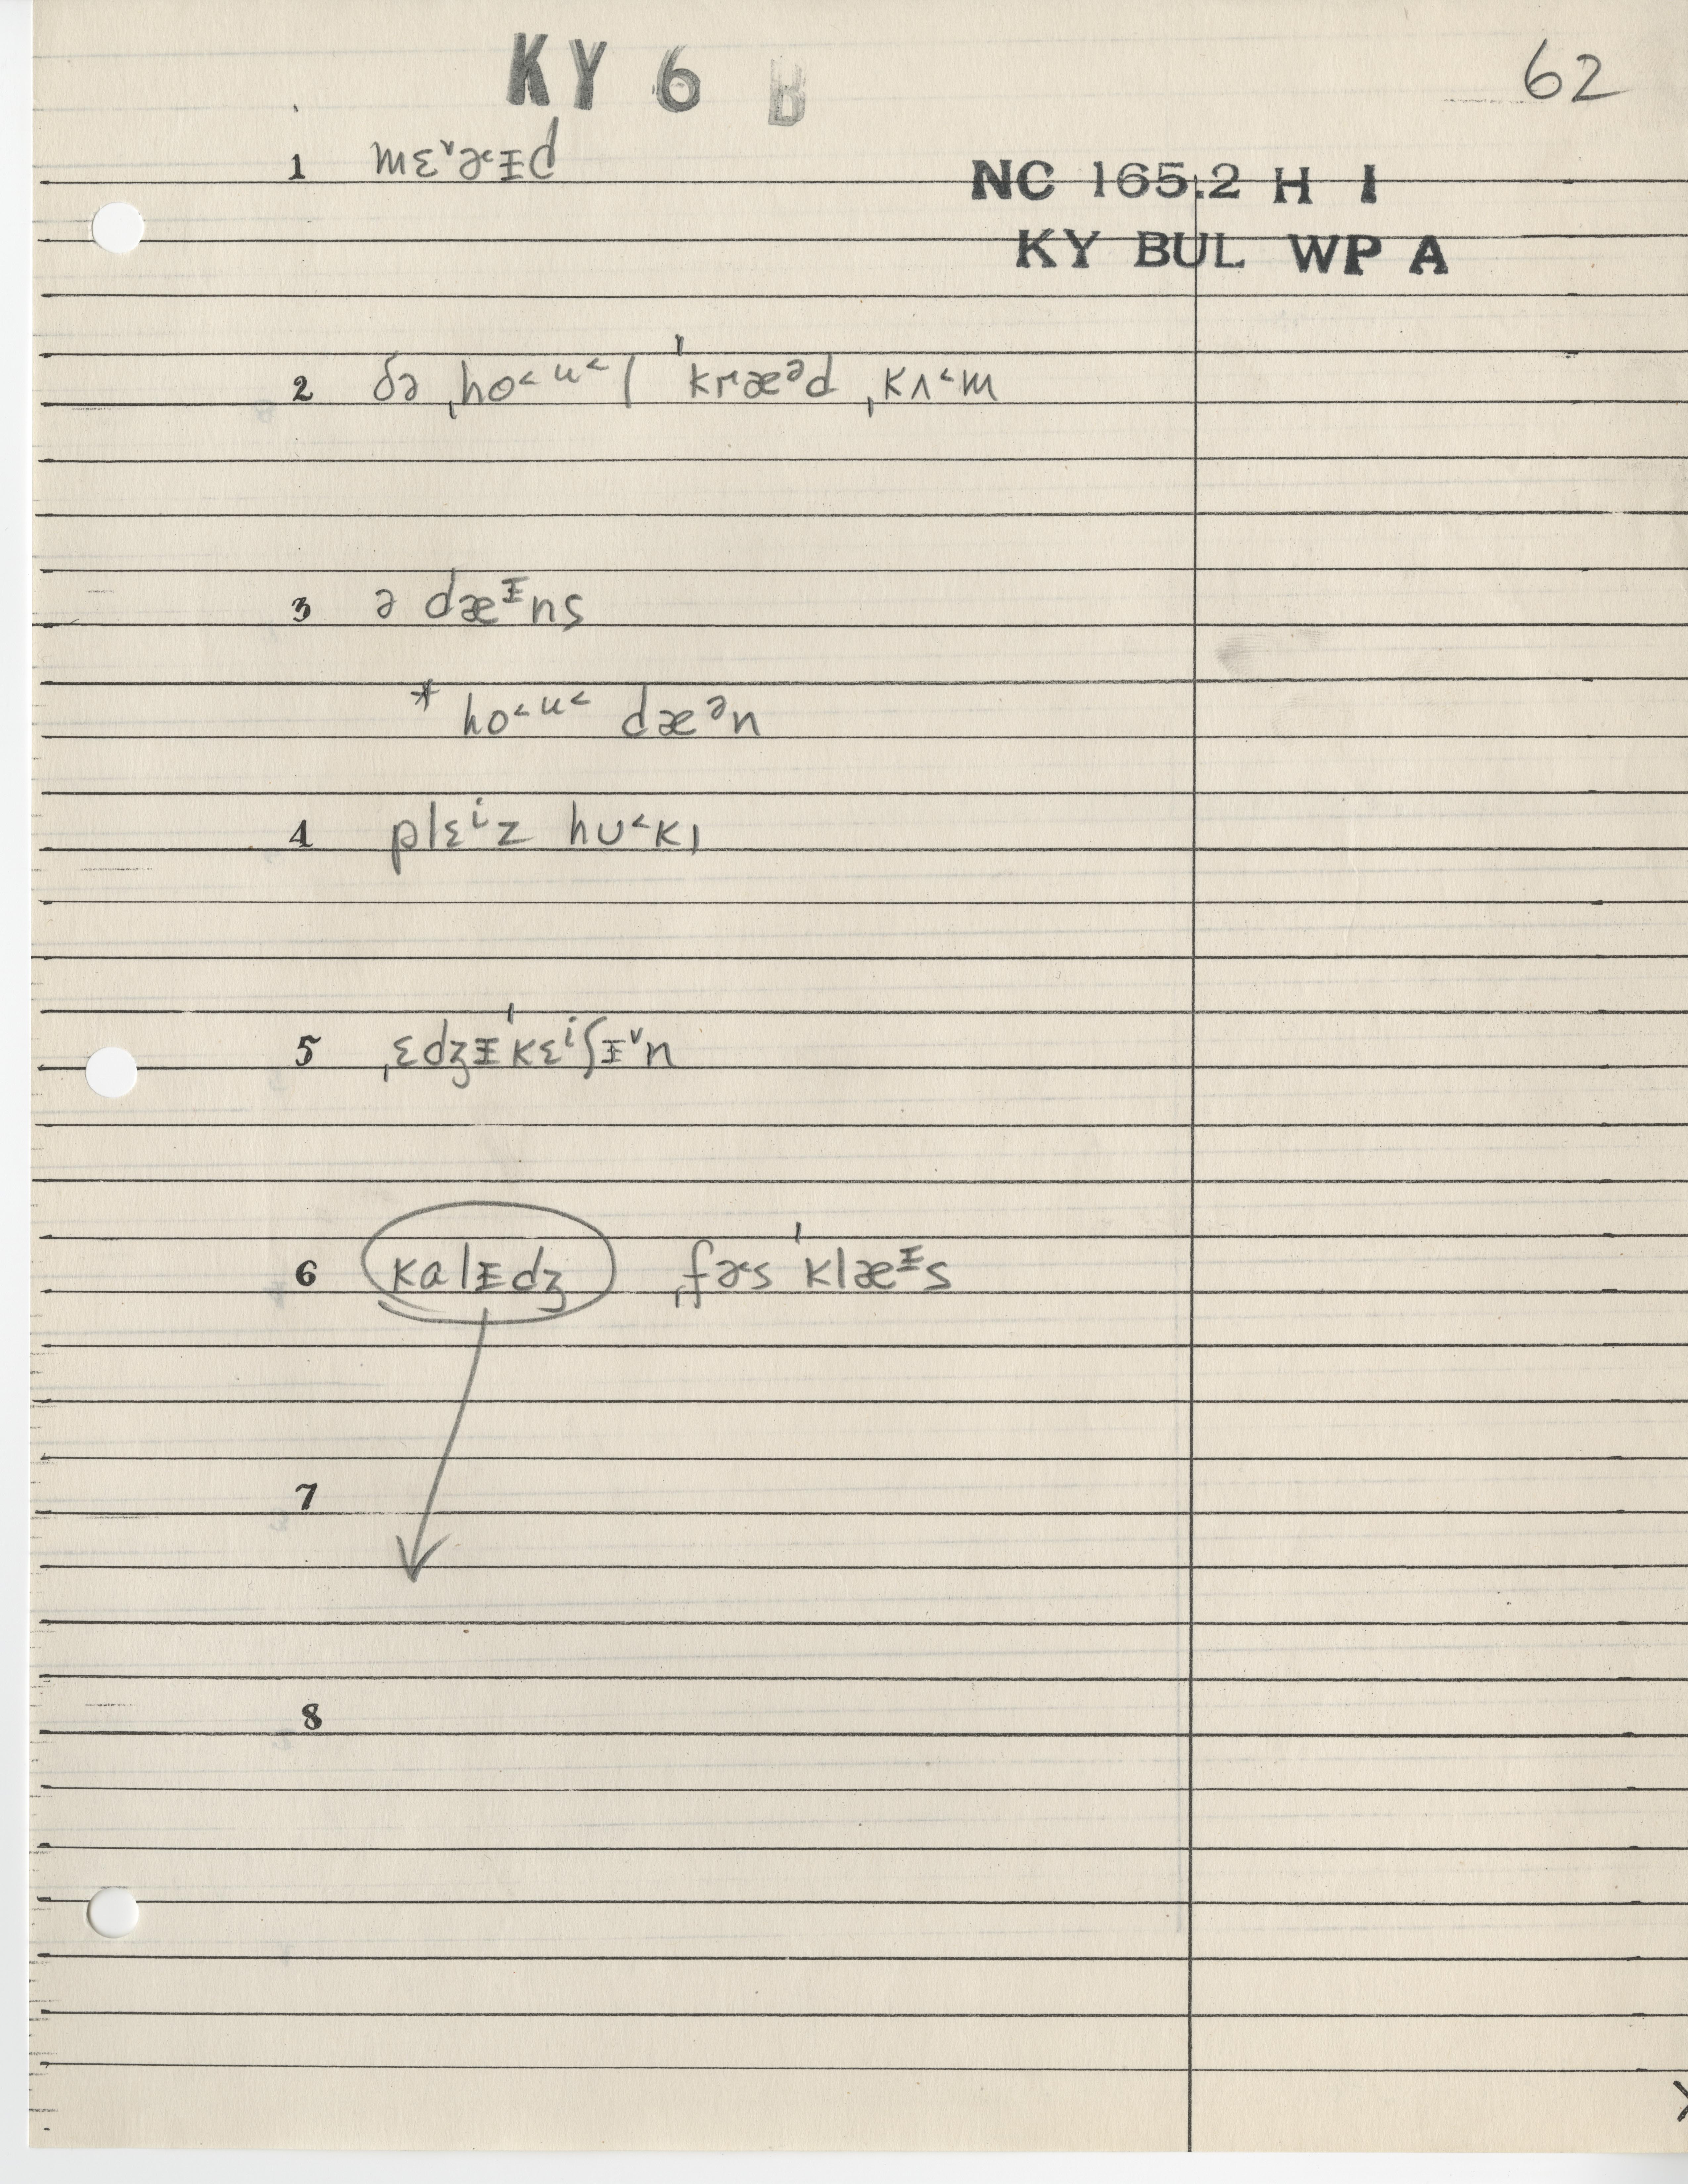 KY 6 B
62
1 mɛᵛɚᵻd
NC 165.2 H I
KY BUL WP A
2 ðə ˌho˂u˂l ˈkræᵊd ˌkʌ˂m
3 ə dæᵻns
* ho˂u˂ dæᵊn
4 plɛⁱz hʊ˂kɪ
5 ˌɛdʒᵻˈkɛⁱʃᵻᵛn
6 kalᵻdʒ ˌfɚs ˈklæᵻs
7
8